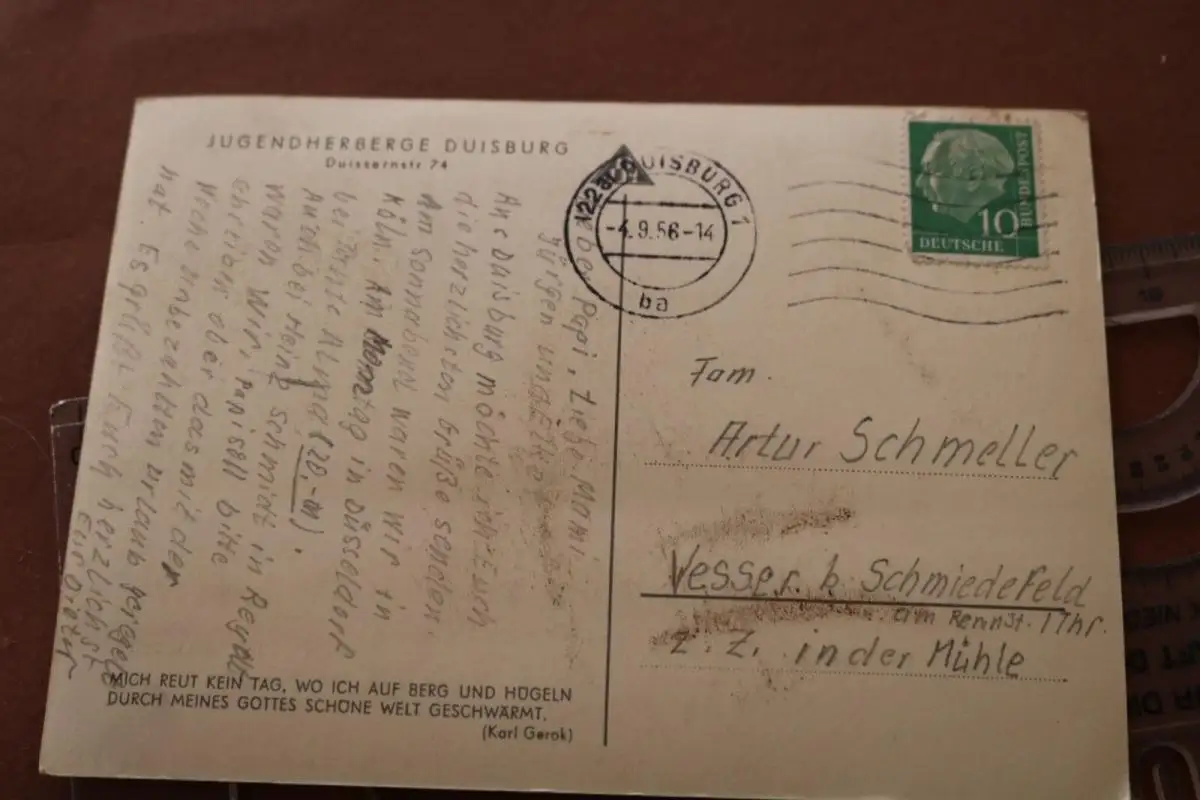 JUGENDHERBERGE DUISBURG
Duissernstr 74
Lieber Papi, Liebe Mami
Jürgen und Elke
Aus Duisburg möchte ich Euch
die herzlichsten Grüße senden.
Am Sonnabend waren wir in
Köln. Am Montag in Düsseldorf
bei Tante (20.-M).
Auch bei Heinz Schmidt in
waren wir. Papi soll bitte
das mit der
Woche unbezahlten Urlaub
hat. Es grüßt Euch herzlichst
Euer Dieter
MICH REUT KEIN TAG, WO ICH AUF BERG UND HÜGELN
DURCH MEINES GOTTES SCHÖNE WELT GESCHWÄRMT.
(Karl Gerok)
DUISBURG 1
-4.9.56-14
ba
10
DEUTSCHE
BUNDESPOST
Fam.
Artur Schmeller
Vesser b. Schmiedefeld
am Rennst. Thr.
z. Z. in der Mühle